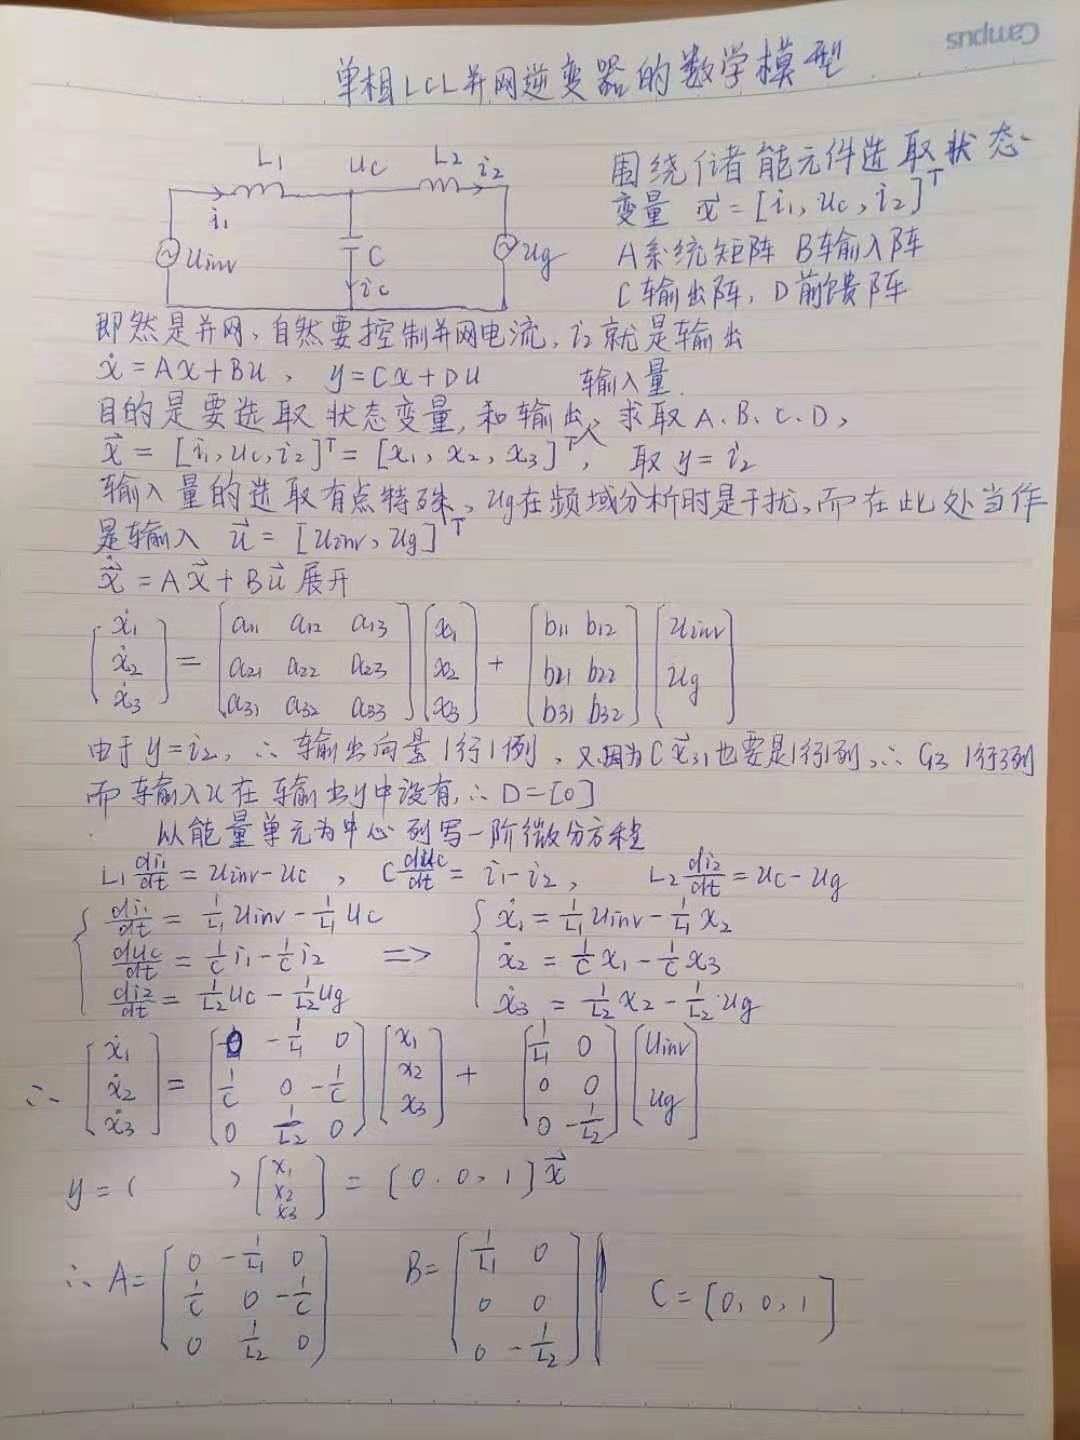 Campus
单相LCL并网逆变器的数学模型
L1 uc L2 i2
i1
Uinv C Ug
ic
围绕储能元件选取状态
变量 x⃗ = [i1, uc, i2]^T
A系统矩阵 B输入阵
C输出阵, D前馈阵
即然是并网、自然要控制并网电流, i2就是输出
ẋ = Ax + Bu、 y = Cx + Du 输入量.
目的是要选取状态变量, 和输出、求取A、B、C、D,
x⃗ = [i1, uc, i2]^T = [x1, x2, x3]^T, 取 y = i2
输入量的选取有点特殊、ug在频域分析时是干扰、而在此处当作
是输入 u⃗ = [uinv, ug]^T
ẋ⃗ = Ax⃗ + Bu⃗ 展开
[ẋ1 ẋ2 ẋ3] = [a11 a12 a13; a21 a22 a23; a31 a32 a33] [x1 x2 x3] + [b11 b12; b21 b22; b31 b32] [uinv ug]
由于 y = i2, ∴ 输出向量1行1例, 又因为Cx⃗31也要是1行1列, ∴ C13 1行3列
而输入u在输出y中没有, ∴ D = [0]
从能量单元为中心列写一阶微分方程
L1 di1/dt = uinv - uc, C duc/dt = i1 - i2, L2 di2/dt = uc - ug
di1/dt = 1/L1 uinv - 1/L1 uc ẋ1 = 1/L1 uinv - 1/L1 x2
duc/dt = 1/C i1 - 1/C i2 => ẋ2 = 1/C x1 - 1/C x3
di2/dt = 1/L2 uc - 1/L2 ug ẋ3 = 1/L2 x2 - 1/L2 ug
∴ [ẋ1 ẋ2 ẋ3] = [0 -1/L1 0; 1/C 0 -1/C; 0 1/L2 0] [x1 x2 x3] + [1/L1 0; 0 0; 0 -1/L2] [uinv ug]
y = ( ) [x1 x2 x3] = [0. 0, 1] x⃗
∴ A = [0 -1/L1 0; 1/C 0 -1/C; 0 1/L2 0] B = [1/L1 0; 0 0; 0 -1/L2] C = [0, 0, 1]